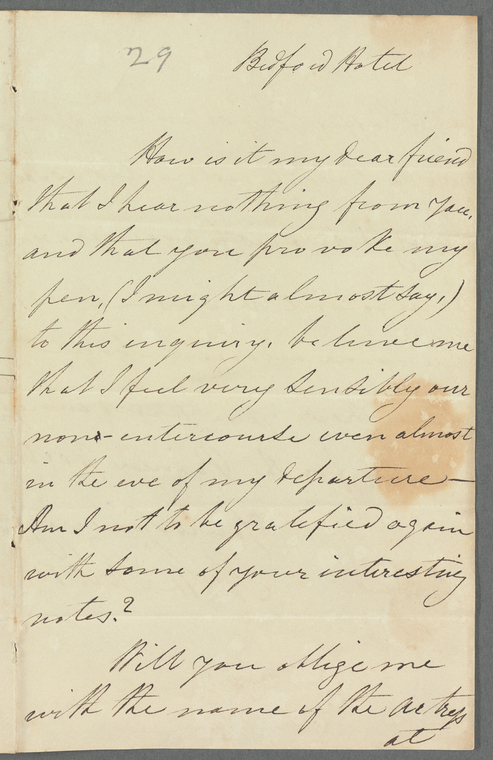 29
Bedford Hotel
How is it my dear friend
that I hear nothing from you,
and that you provoke my
pen, (I might almost say,)
to this inquiry. believe me
that I feel very sensibly our
non-entercourse even almost
in the eve of my departure—
Am I not to be gratified again
with some of your interesting
notes.?
Will you oblige me
with the name of the actress
at